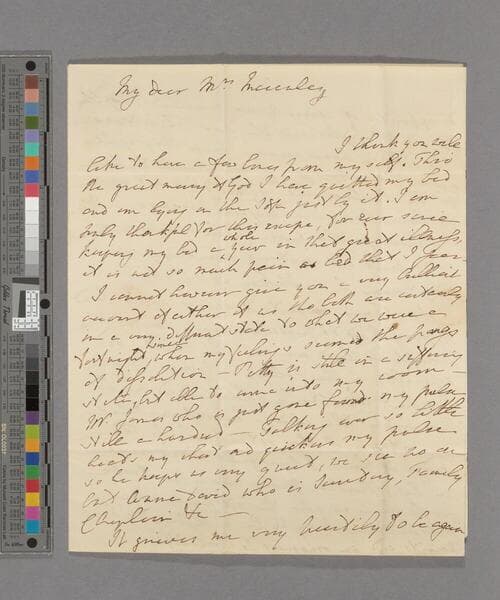 My dear Mrs
I think you will
like to have a few lines from myself. Thro
the great mercy of God I have quitted my bed
and am lying on the Sofa just by it. I am
truly thankful for this escape, for ever since
keeping my bed a whole year in that great illness,
it is not so much pain as bed that I fear.
I cannot however give you a very brilliant
account of either of us tho both are certainly
in a very different state to what we were a
fortnight since, when my feelings seemed the pangs
of dissolution — Patty is still in a suffering
state, tho' able to come into my room —
Mr Jones who is just gone found my pulse
still a hundred — Talking ever so little
heats my chest and quickens my pulse
so he keeps us very quiet, we see no one
but who is Secretary, Family
Chaplain &c —
It grieves me very heartily to be again